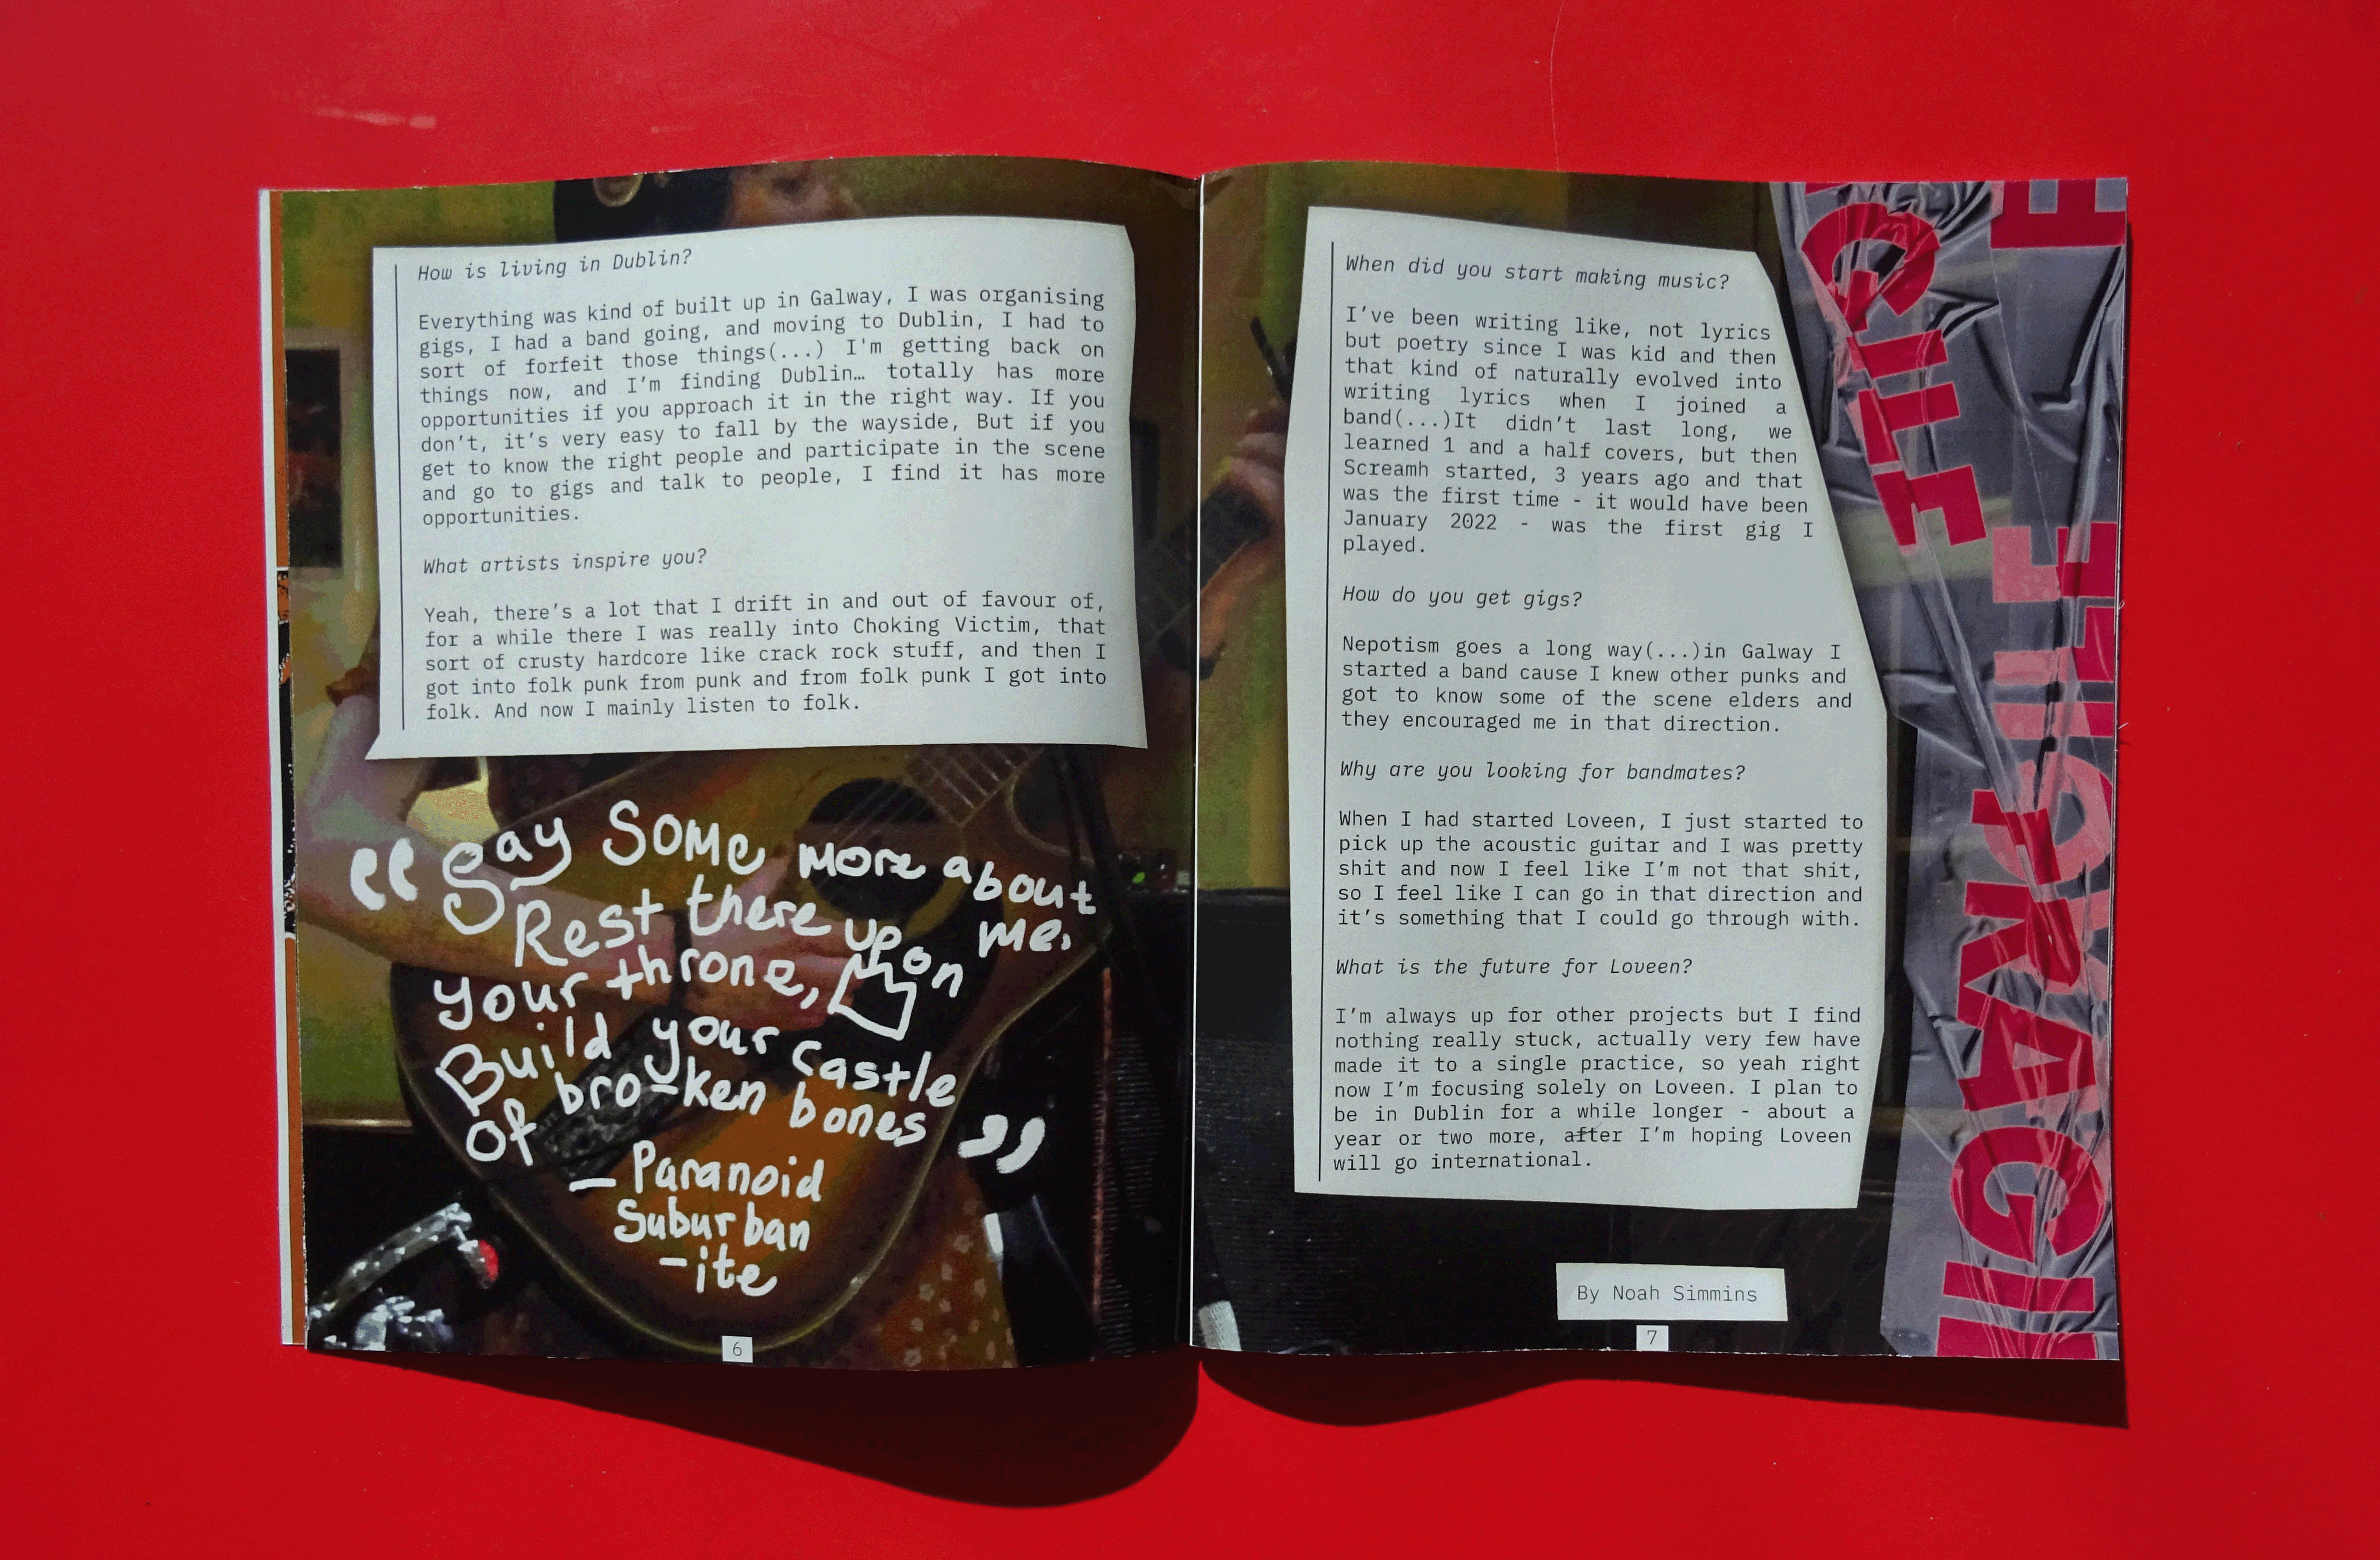 How is living in Dublin?
Everything was kind of built up in Galway, I was organising
gigs, I had a band going, and moving to Dublin, I had to
sort of forfeit those things(...) I'm getting back on
things now, and I'm finding Dublin… totally has more
opportunities if you approach it in the right way. If you
don't, it's very easy to fall by the wayside, But if you
get to know the right people and participate in the scene
and go to gigs and talk to people, I find it has more
opportunities.
What artists inspire you?
Yeah, there's a lot that I drift in and out of favour of,
for a while there I was really into Choking Victim, that
sort of crusty hardcore like crack rock stuff, and then I
got into folk punk from punk and from folk punk I got into
folk. And now I mainly listen to folk.
“Say some more about
me.
Rest there upon
your throne,
Build your castle
of bro-ken bones”
– Paranoid
Suburban
-ite
6
When did you start making music?
I've been writing like, not lyrics
but poetry since I was kid and then
that kind of naturally evolved into
writing lyrics when I joined a
band(...)It didn't last long, we
learned 1 and a half covers, but then
Screamh started, 3 years ago and that
was the first time - it would have been
January 2022 - was the first gig I
played.
How do you get gigs?
Nepotism goes a long way(...)in Galway I
started a band cause I knew other punks and
got to know some of the scene elders and
they encouraged me in that direction.
Why are you looking for bandmates?
When I had started Loveen, I just started to
pick up the acoustic guitar and I was pretty
shit and now I feel like I'm not that shit,
so I feel like I can go in that direction and
it's something that I could go through with.
What is the future for Loveen?
I'm always up for other projects but I find
nothing really stuck, actually very few have
made it to a single practice, so yeah right
now I'm focusing solely on Loveen. I plan to
be in Dublin for a while longer - about a
year or two more, after I'm hoping Loveen
will go international.
By Noah Simmins
7
GILE
FRAGI